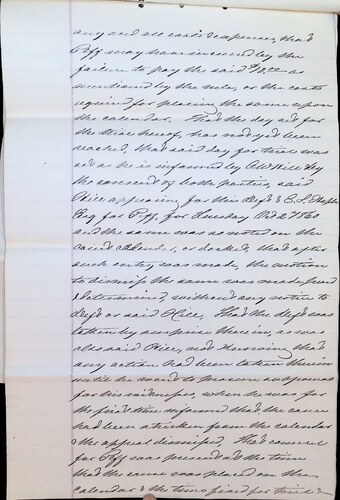 any and all costs & expenses, that
Pff may have incurred by the
failure to pay the said $10.00 as
mentioned by the rule, or the costs
required for placing the same upon
the calendar. That the day set for
the trial hereof, has not yet been
reached, that said day for trial was
set as he is informed by C W Hill by
the consent of both parties, said
Hill appearing for this Deft & E. S.
Esq for Pff, for Tuesday Oct 27
and the same was so noted on the
Court Calendar, or docket, that after
such entry was made, the motion
to dismiss the same was made, and
determined, without any notice to
Deft or said Hill. That the Deft was
taken by surprise therein, as was
also said Hill, not knowing that
any action had been taken therein
until he went to procure subpoenas
for his witnesses, when he was for
the first time informed that the cause
had been stricken from the calendar
& the appeal dismissed. That counsel
for Pff was present at the time
that the cause was placed on the
calendar & the time fixed for trial &